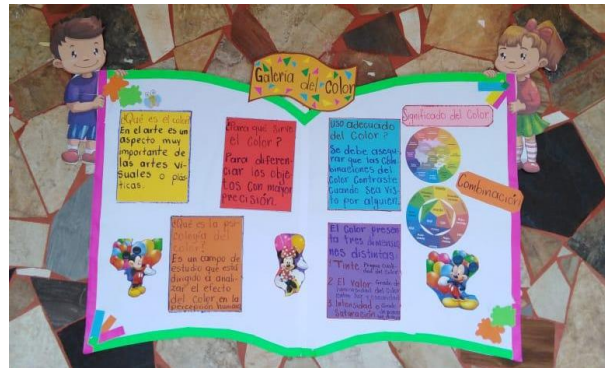 Galería del Color
¿Qué es el color?
En el arte es un
aspecto muy
importante de
las artes vi-
suales o plás-
ticas.
¿Para qué sirve
el color?
Para diferen-
ciar los obje-
tos con mayor
precisión.
¿Qué es la psi-
cología del
color?
Es un campo de
estudio que está
dirigido a anali-
zar el efecto
del color en la
percepción humana
uso adecuado
del Color?
Se debe asegu-
rar que las Com-
binaciones del
Color Contraste
cuando sea vis-
to por alguien.
El Color presen
ta tres dimensio
nes distintas.
1 Tinte
2 El valor Grado de
luminosidad del Color
3 Intensidad o
Saturación
Significado del Color
Combinación